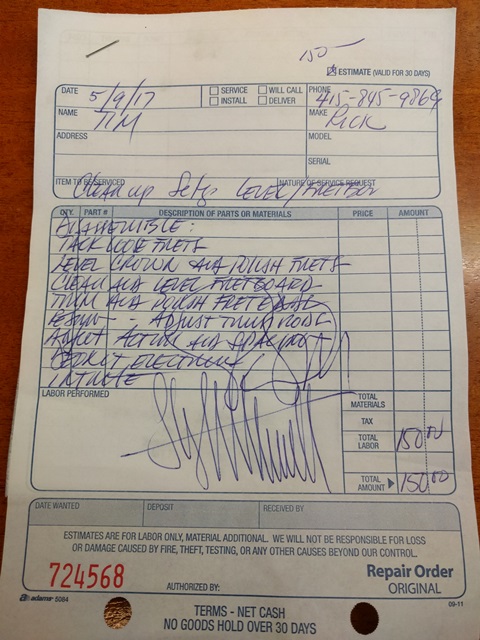 150-
ESTIMATE (VALID FOR 30 DAYS)
DATE 5/9/17 SERVICE WILL CALL PHONE 415-845-9864
INSTALL DELIVER
NAME TIM MAKE RICK
ADDRESS MODEL
SERIAL
ITEM TO BE SERVICED NATURE OF SERVICE REQUEST
Clean up Setup Level/
QTY. PART # DESCRIPTION OF PARTS OR MATERIALS PRICE AMOUNT
TACK LOOSE FRETS
LEVEL CROWN AND POLISH FRETS
CLEAN AND LEVEL FRETBOARD
TRIM AND POLISH
- ADJUST TRUSS RODS
ADJUST ACTION AND
ELECTRONICS
INTONATE
LABOR PERFORMED
TOTAL MATERIALS
TAX
TOTAL LABOR 150.00
TOTAL AMOUNT 150.00
DATE WANTED DEPOSIT RECEIVED BY
ESTIMATES ARE FOR LABOR ONLY, MATERIAL ADDITIONAL. WE WILL NOT BE RESPONSIBLE FOR LOSS
OR DAMAGE CAUSED BY FIRE, THEFT, TESTING, OR ANY OTHER CAUSES BEYOND OUR CONTROL.
724568 Repair Order
AUTHORIZED BY: ORIGINAL
adams 5084 09-11
TERMS - NET CASH
NO GOODS HOLD OVER 30 DAYS